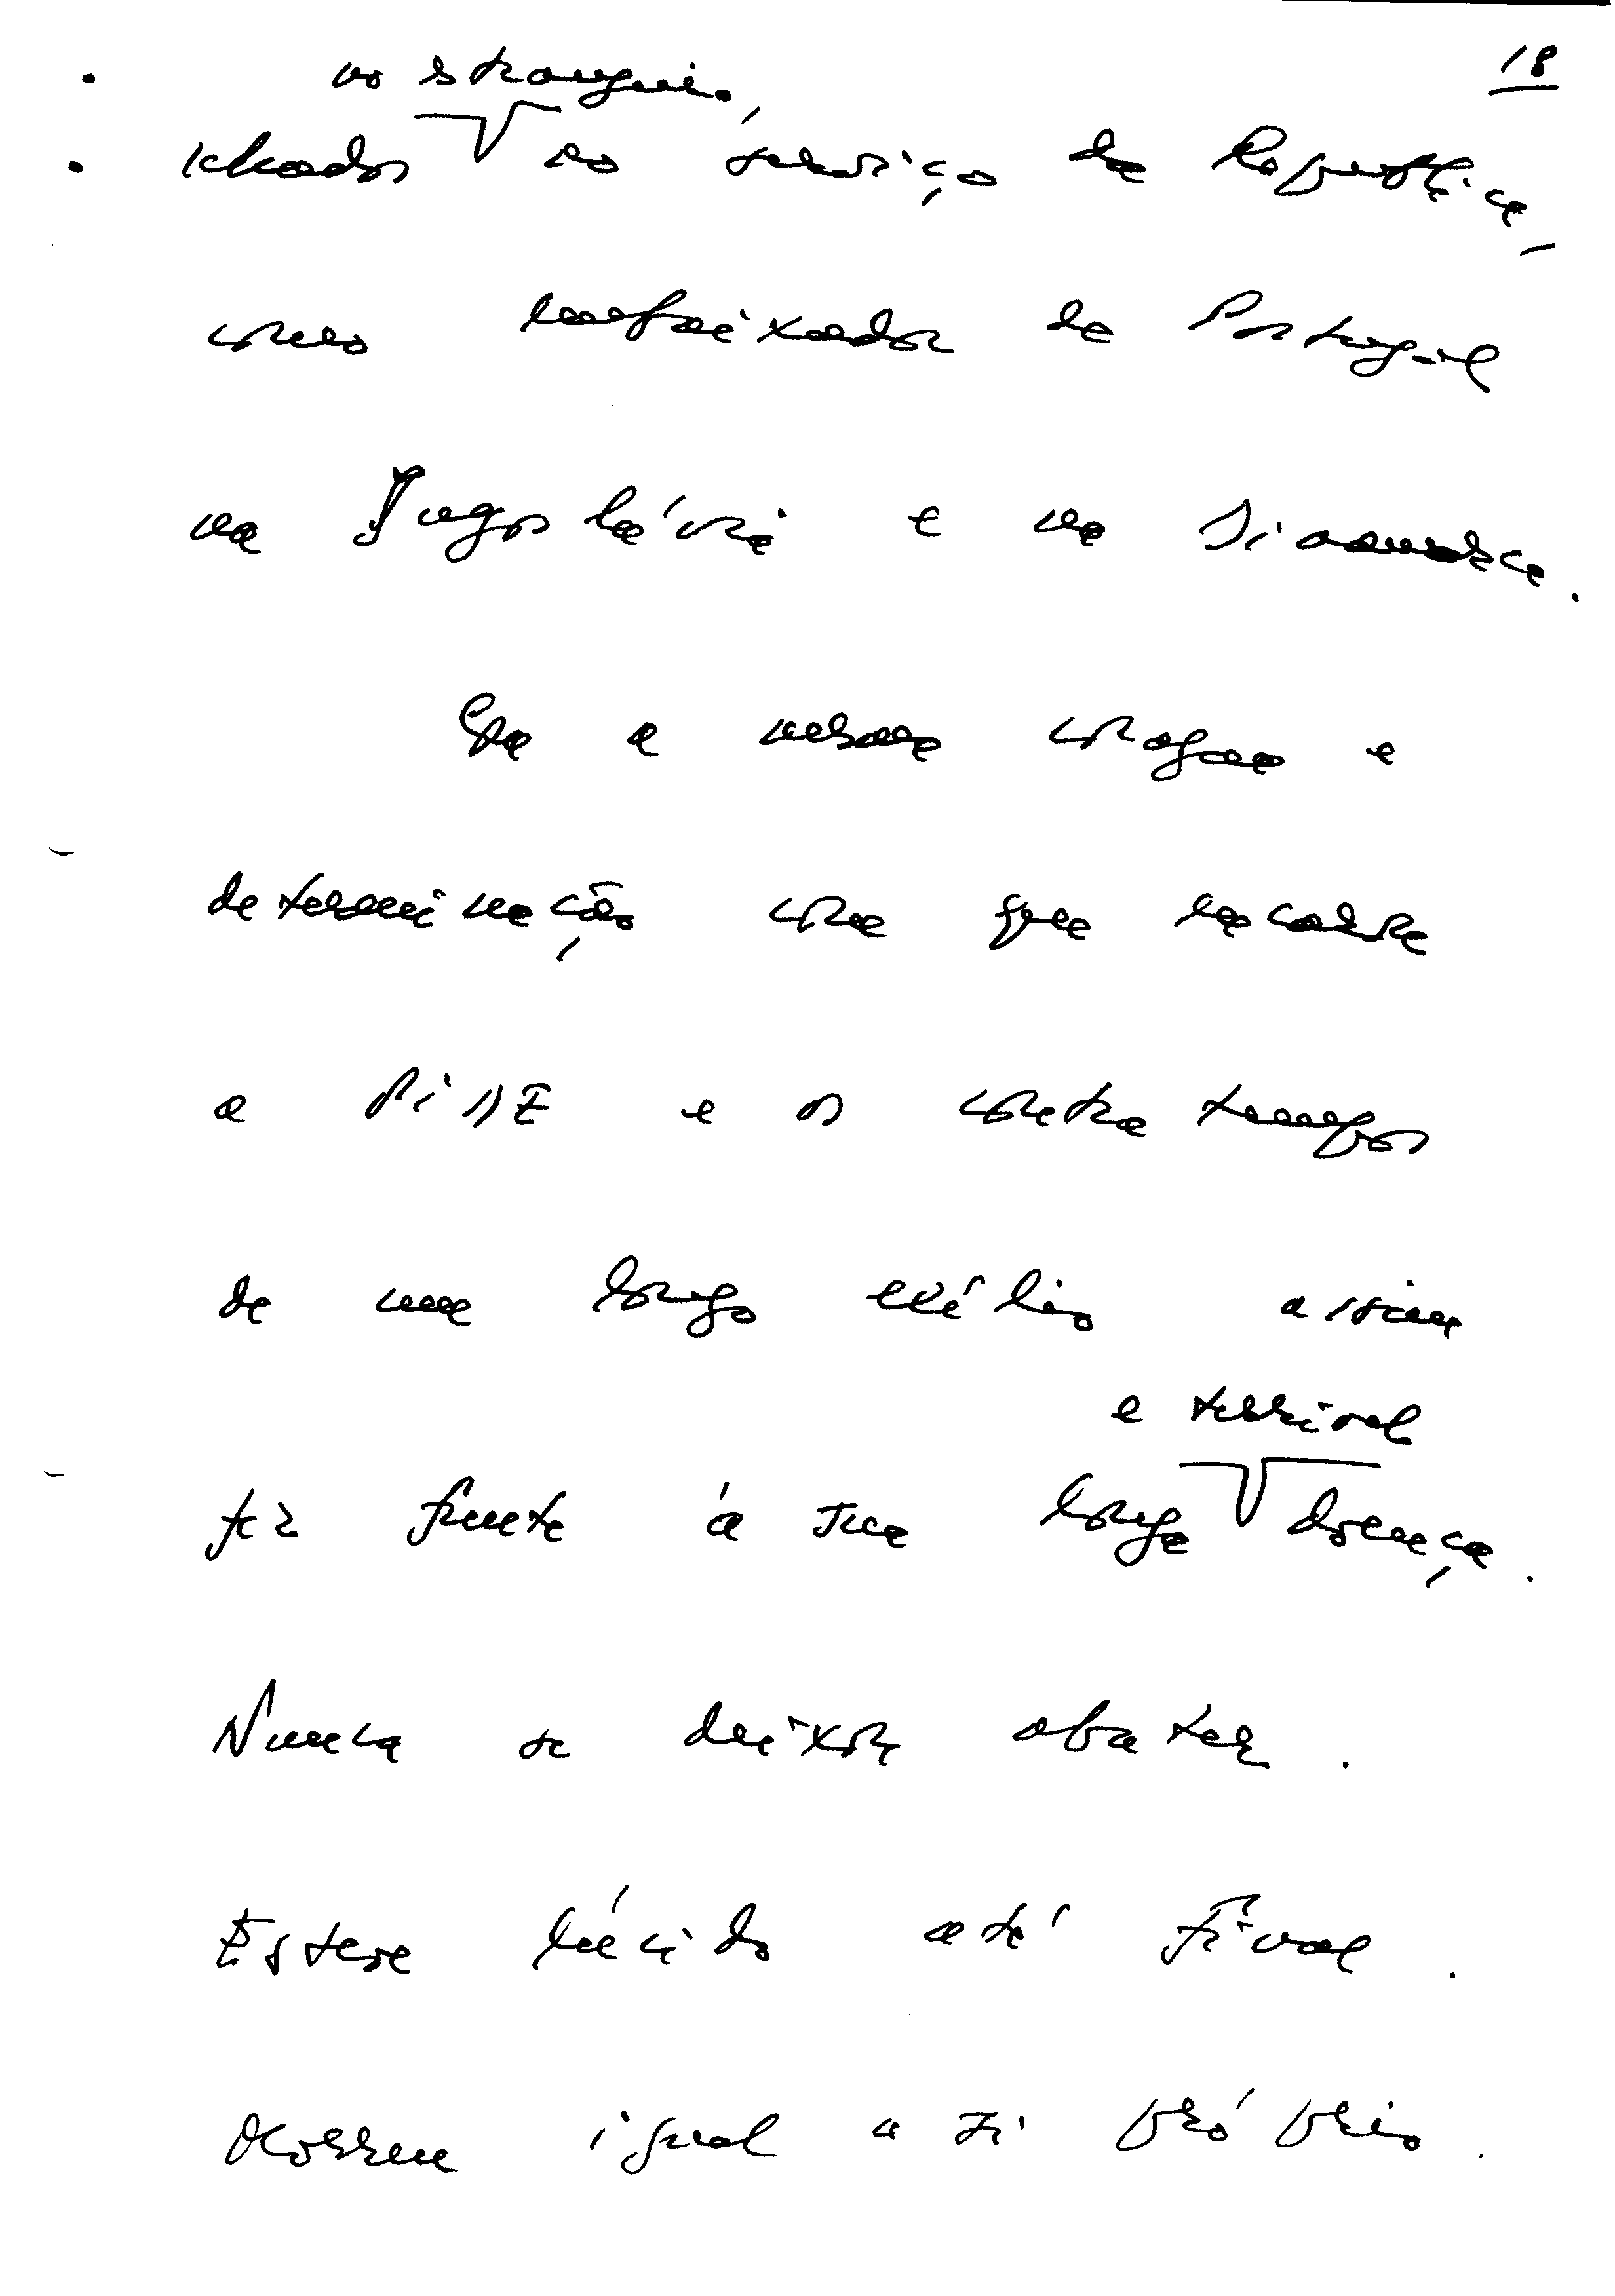 18
no estrangeiro,
ao serviço da República,
como Embaixador de Portugal
na Jugoslávia e na Dinamarca.
Com a mesma coragem e
determinação com que encarou
a PIDE e os contratempos
de um longo exílio assim
e terrível
fez frente à sua longa doença.
Nunca se deixou abater.
Esteve lúcido até final.
Morreu igual a si próprio.